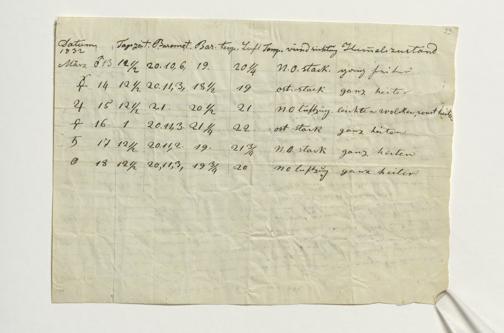 Datum Tagzeit. Baromet. Bar. temp. Luft Temp. windrichtung Himmelszustand
1832
März ♂ 13 12½ 20.10,6 19. 20¼ N.O. stark. ganz heiter
☿ 14 12½ 20.11,3, 18½ 19 ost. stark ganz heiter
♃ 15 12½ 21. 20½ 21 NO luftzug. leichte wolken sonst heiter
♀ 16. 1 20.11,3. 21¼ 22 ost stark ganz heiter
♄ 17 12½ 20.11,2 19. 21¾ N.O. stark ganz heiter
18 12½ 20,11,3, 19¾ 20 NO luftzug ganz heiter